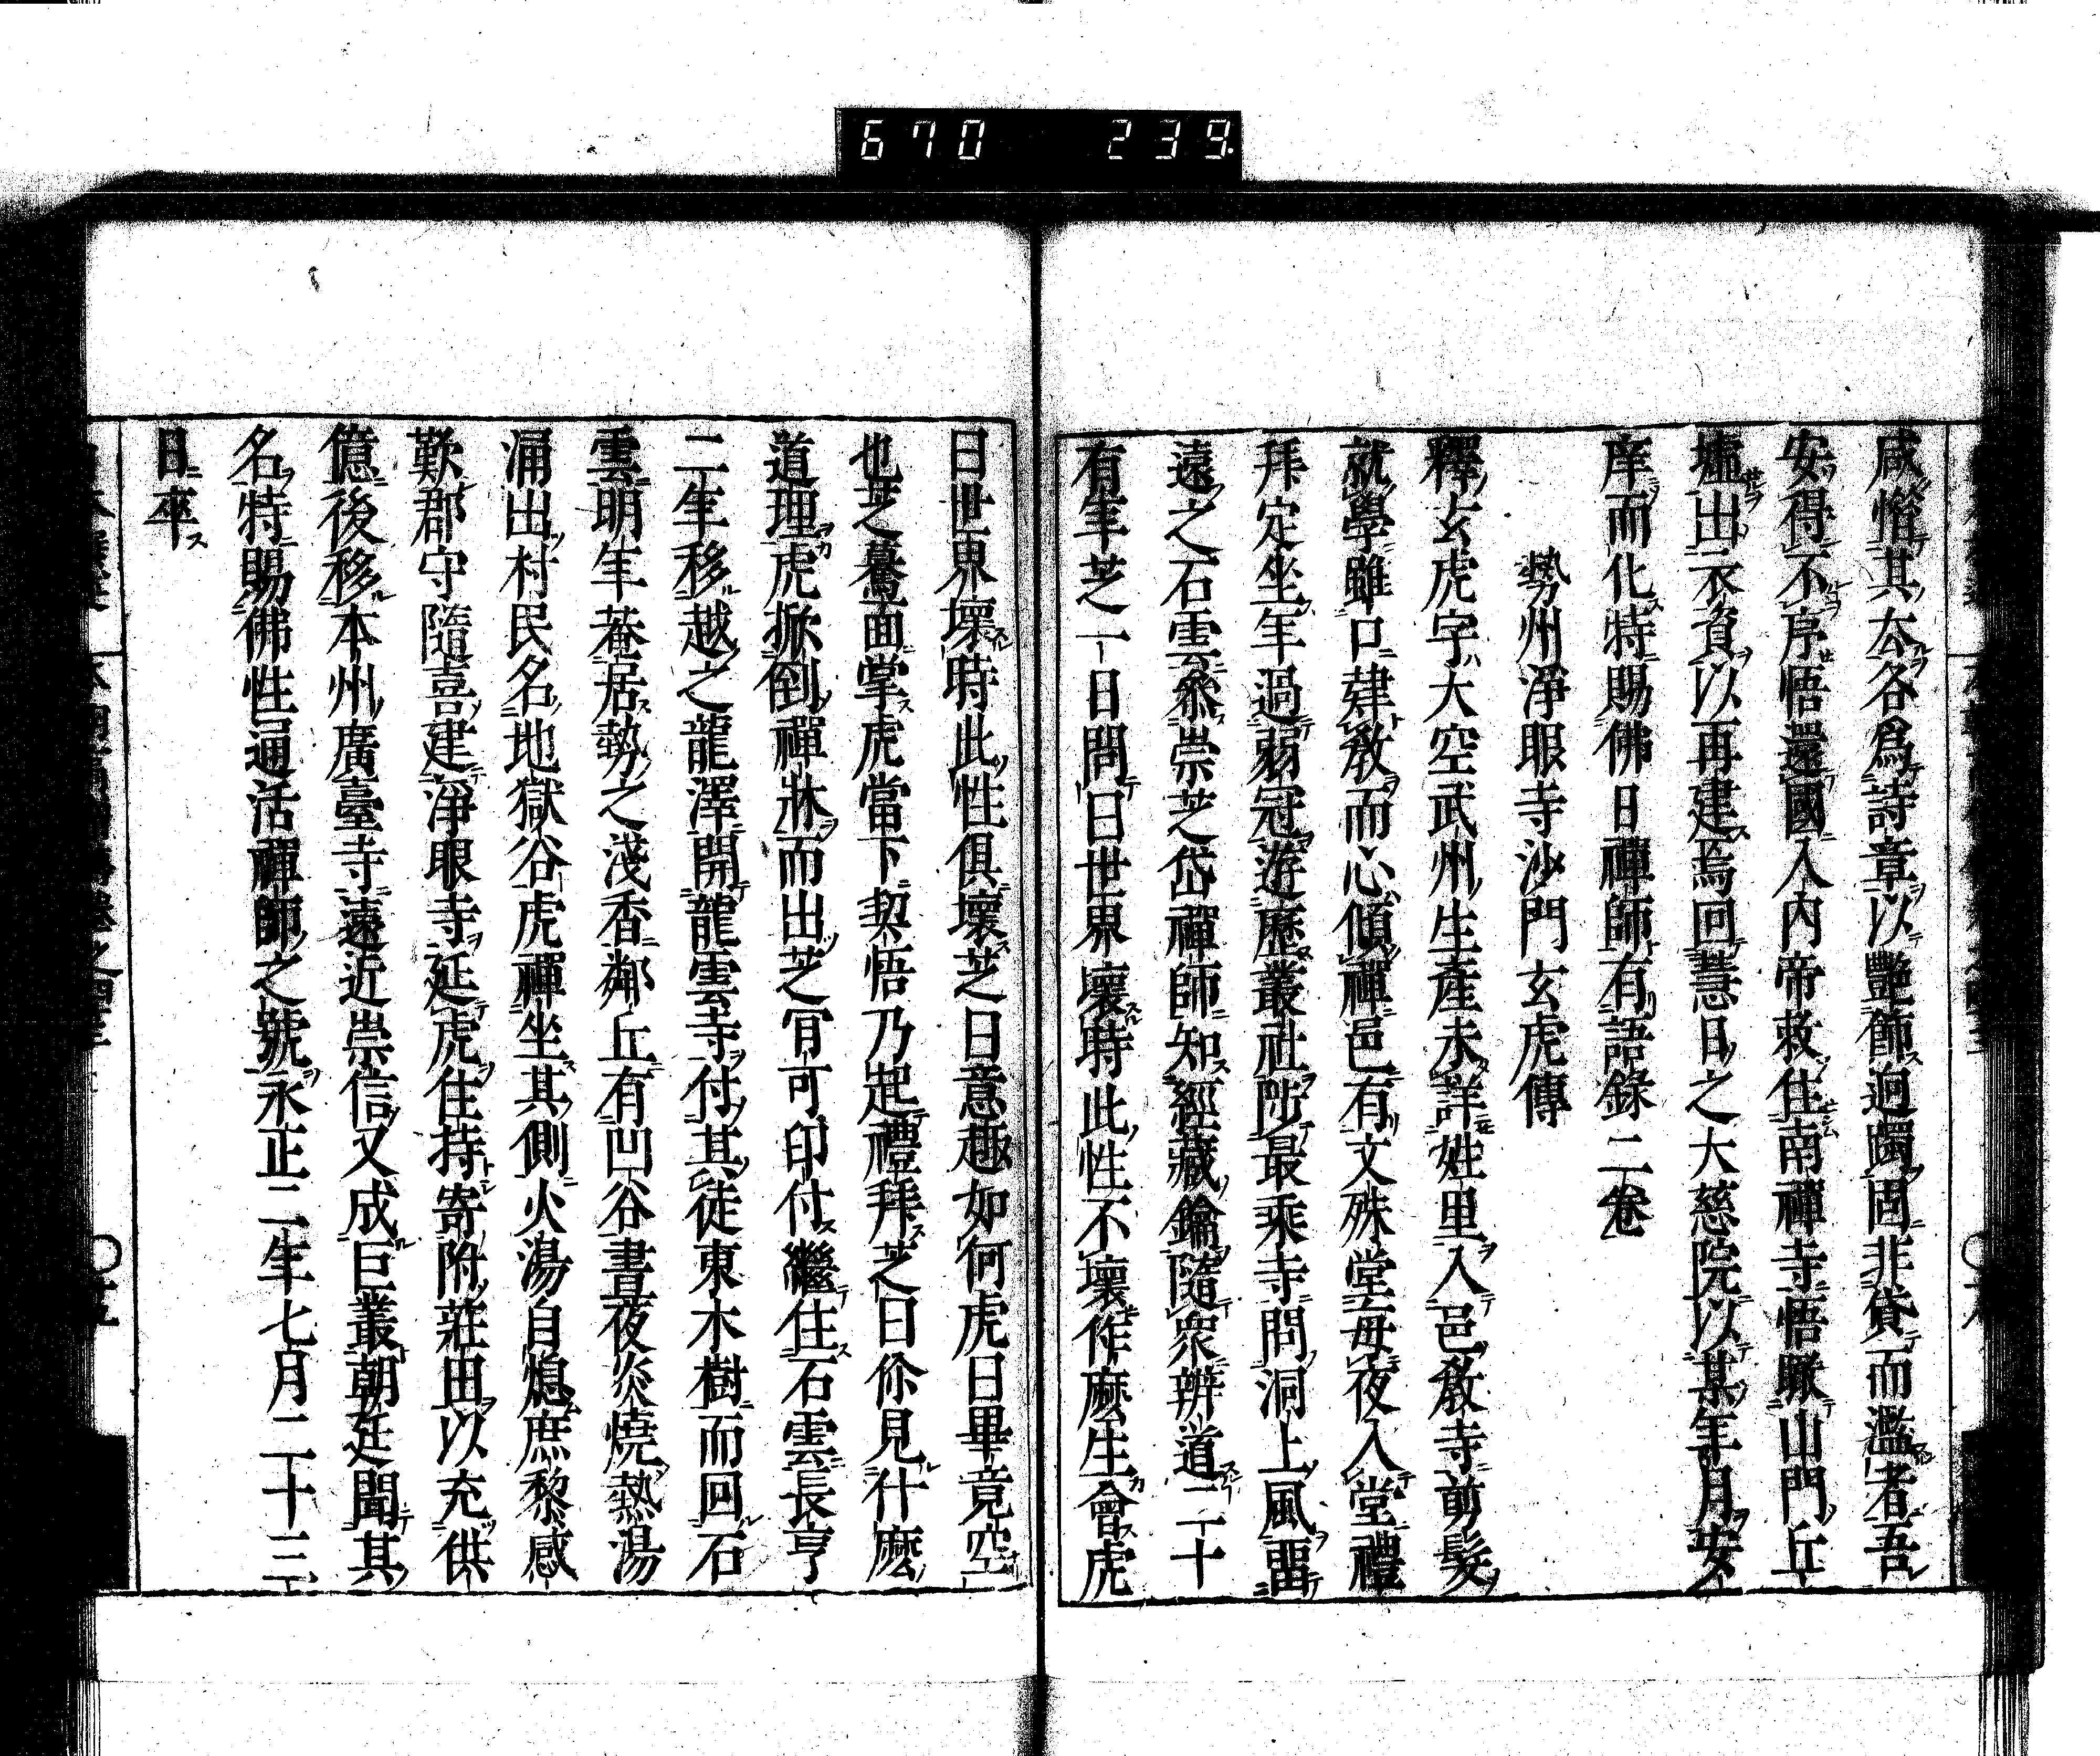 670 239
咸惜其厺各爲詩章以艷節迥躅固非貸而濫者吾
安得不序悟還國入內帝敕住南禪寺悟瞰山門丘
墟出衣資以再建焉回慧日之大慈院以某年月安
庠而化特賜佛日禪師有語錄二卷
勢州淨眼寺沙門玄虎傳
釋玄虎字大空武州生產未詳姓里入邑敎寺剪髮
就學雖口肄敎而心傾禪邑有文殊堂每夜入堂禮
拜定坐年過弱冠遊歷叢社陟最乘寺問洞上風畱
遠之石雲叅崇芝岱禪師知經藏鑰隨衆辨道二十
有年芝一日問曰世界壞時此性不壞作麽生會虎
曰世界壞時此性俱壞芝曰意趣如何虎曰畢竟空
也芝驀面掌虎當下契悟乃起禮拜芝曰伱見什麽
道理虎掀倒禪牀而出芝肎可印付繼住石雲長亨
二年移越之龍澤開龍雲寺付其徒東木樹而回石
雲明年菴居勢之淺香鄰丘有凹谷晝夜炎燒熱湯
涌出村民名地獄谷虎禪坐其側火湯自熄庶黎感
歎郡守隨喜建淨眼寺延虎住持寄附莊田以充供
億後移本州廣臺寺遠近崇信又成巨叢朝廷聞其
名特賜佛性通活禪師之號永正二年七月二十三
日卒